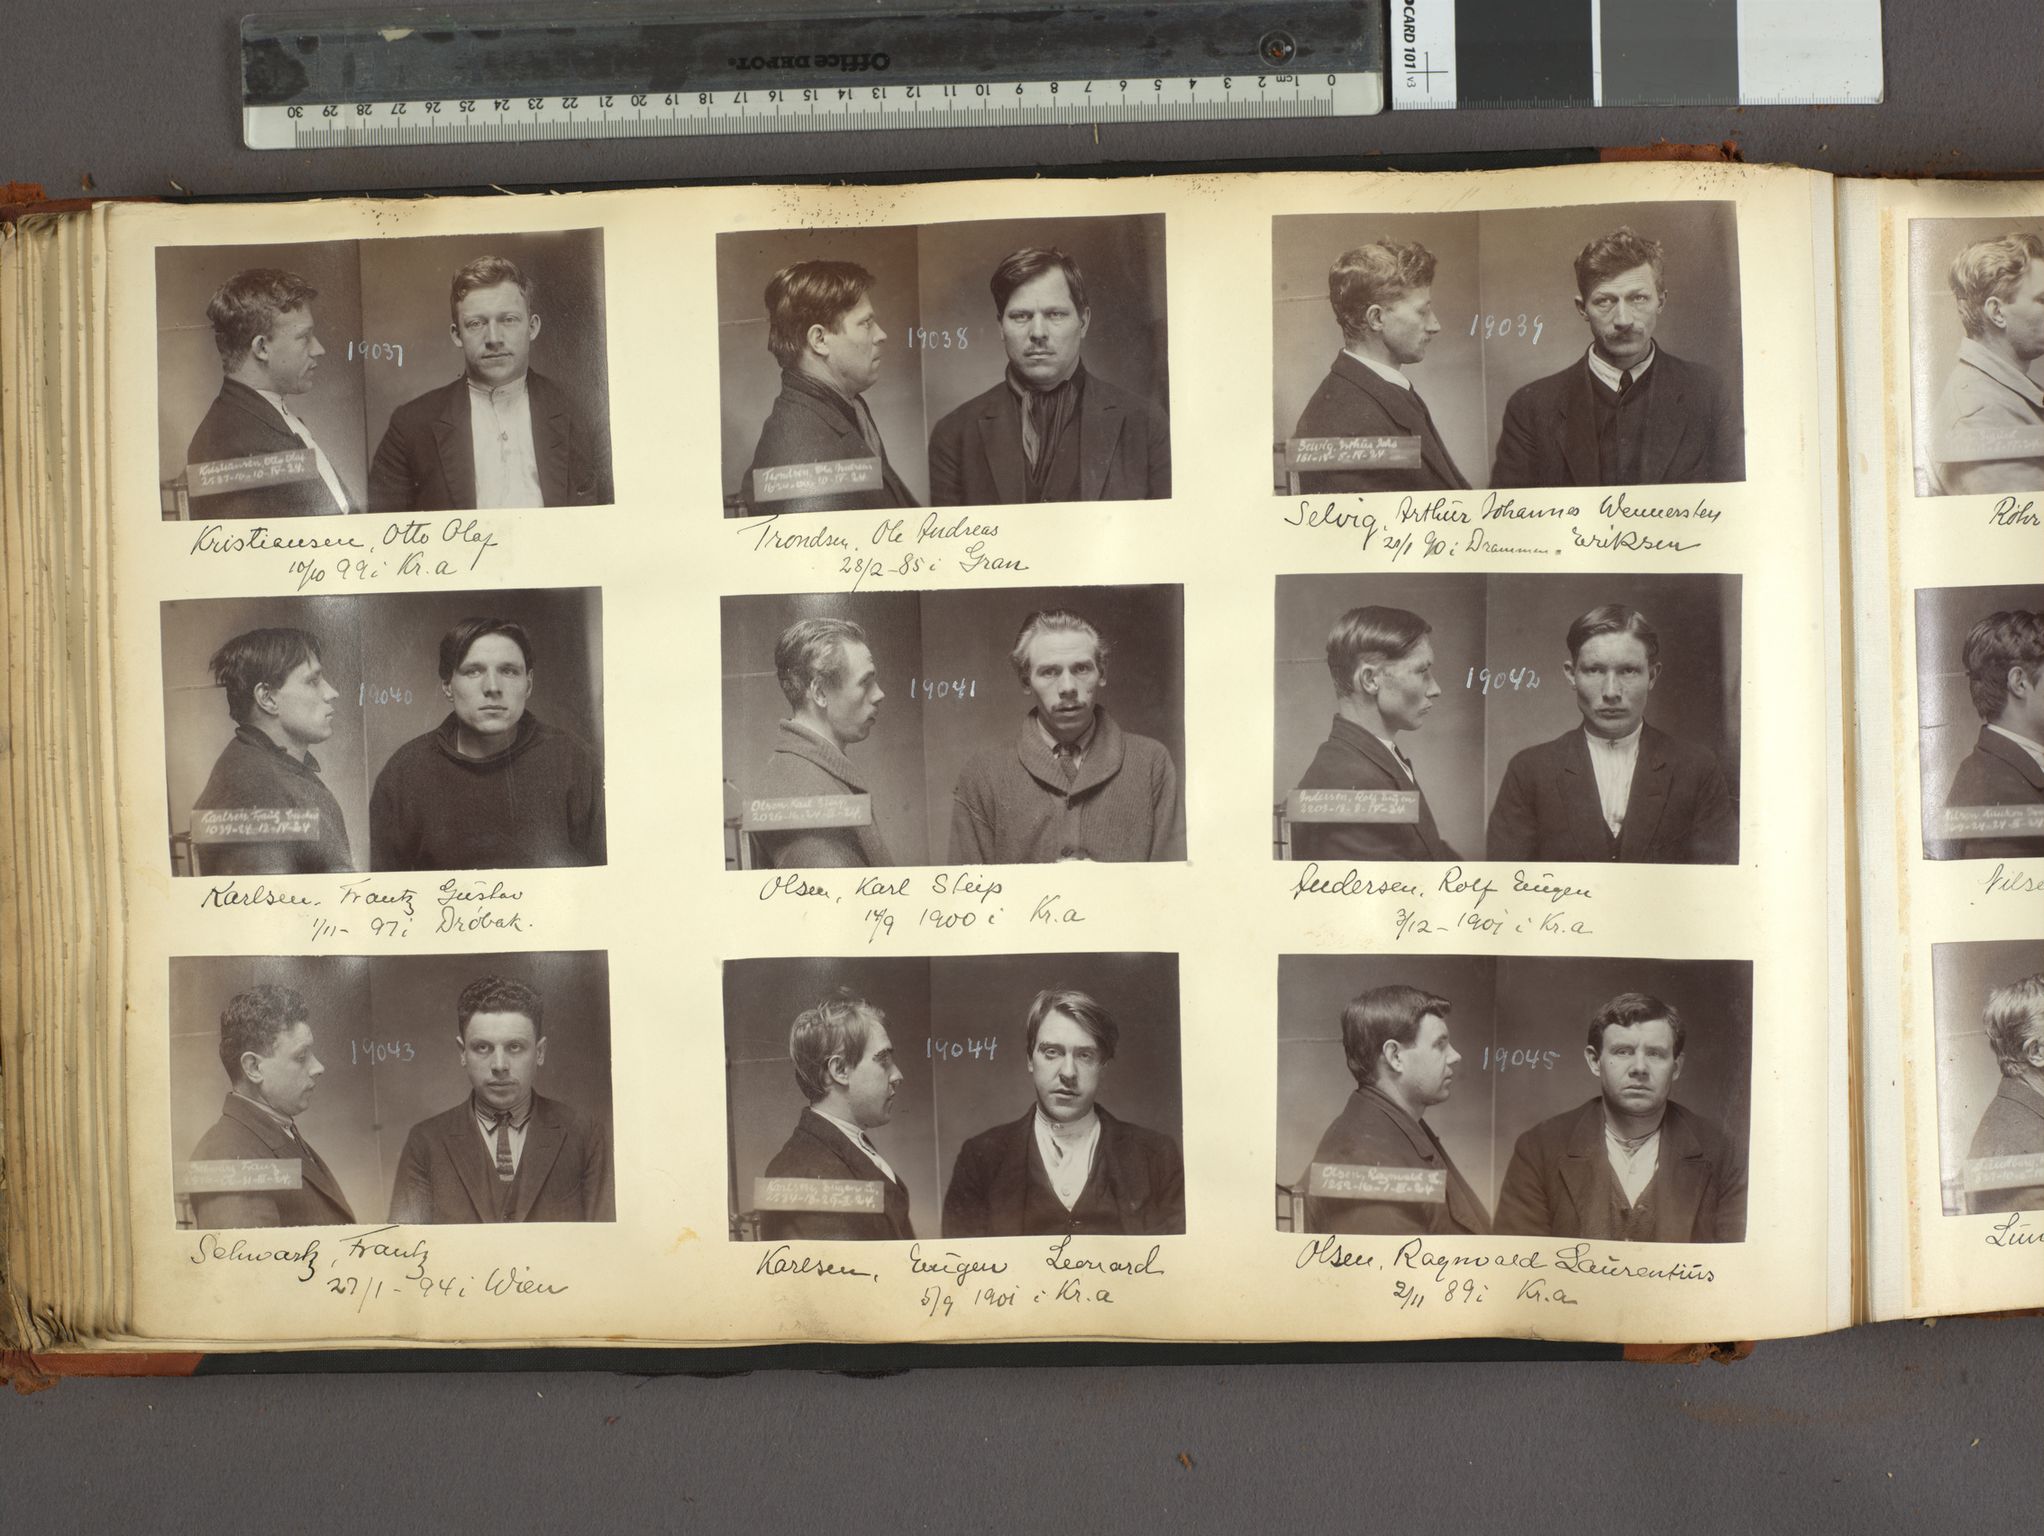 Office DEPOT
0 1cm 2 3 4 5 6 7 8 9 10 11 12 13 14 15 16 17 18 19 20 21 22 23 24 25 26 27 28 29 30
OCARD 101 v3
19037
Kristiansen, Otto Olaf
2537-10-10-IV-24.
Kristiansen, Otto Olaf
10/10 99 i Kr.a
19038
Trondsen, Ole Andreas
10-IV-24
Trondsen, Ole Andreas
28/2-85 i Gran
19039
Selvig, Arthur Johs
Selvig, Arthur Johannes Wennersten
Eriksen
90 i Drammen.
19040
Karlsen, Frantz Gustav
1039-24-12-IV-24
Karlsen, Frantz Gustav
1/11-97 i Drøbak.
19041
Olsen, Karl Steip
Olsen, Karl Steip
14/9 1900 i Kr.a
19042
Andersen, Rolf Eugen
Andersen, Rolf Eugen
3/12-1901 i Kr.a
19043
Schwarz Franz
Schwartz, Frantz
27/1-94 i Wien
19044
Karlsen, Eugen L.
Karlsen, Eugen Leonard
5/9 1901 i Kr.a
19045
Olsen, Ragnvald L.
Olsen, Ragnvald Laurentius
2/11 89 i Kr.a
Röhr
Nilse
Lun